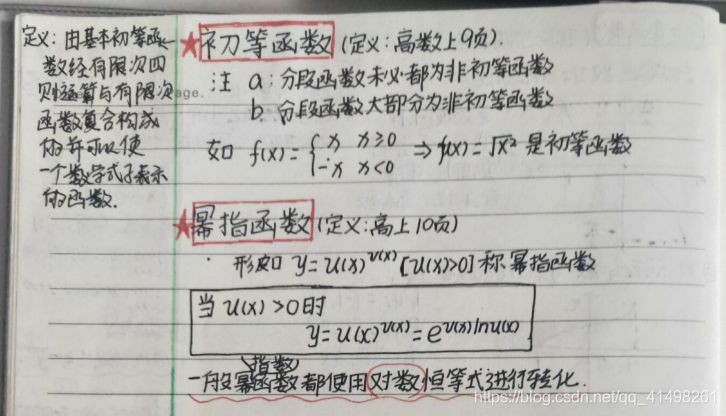 定义:由基本初等函
数经有限次四
则运算与有限次
函数复合构成
的并可以使
一个数学式子表示
的函数.
age.
★初等函数(定义:高数上9页)
注 a:分段函数未必都为非初等函数
b.分段函数大部分为非初等函数
如 f(x)={x x≥0 -x x<0 ⇒f(x)=√x² 是初等函数
★幂指函数(定义:高上10页)
· 形如 y=u(x)^v(x) [u(x)>0] 称幂指函数
当 u(x)>0时
y=u(x)^v(x)=e^v(x)lnu(x)
指数
一般幂函数都使用对数恒等式进行转化.
https://blog.csdn.net/qq_41498261